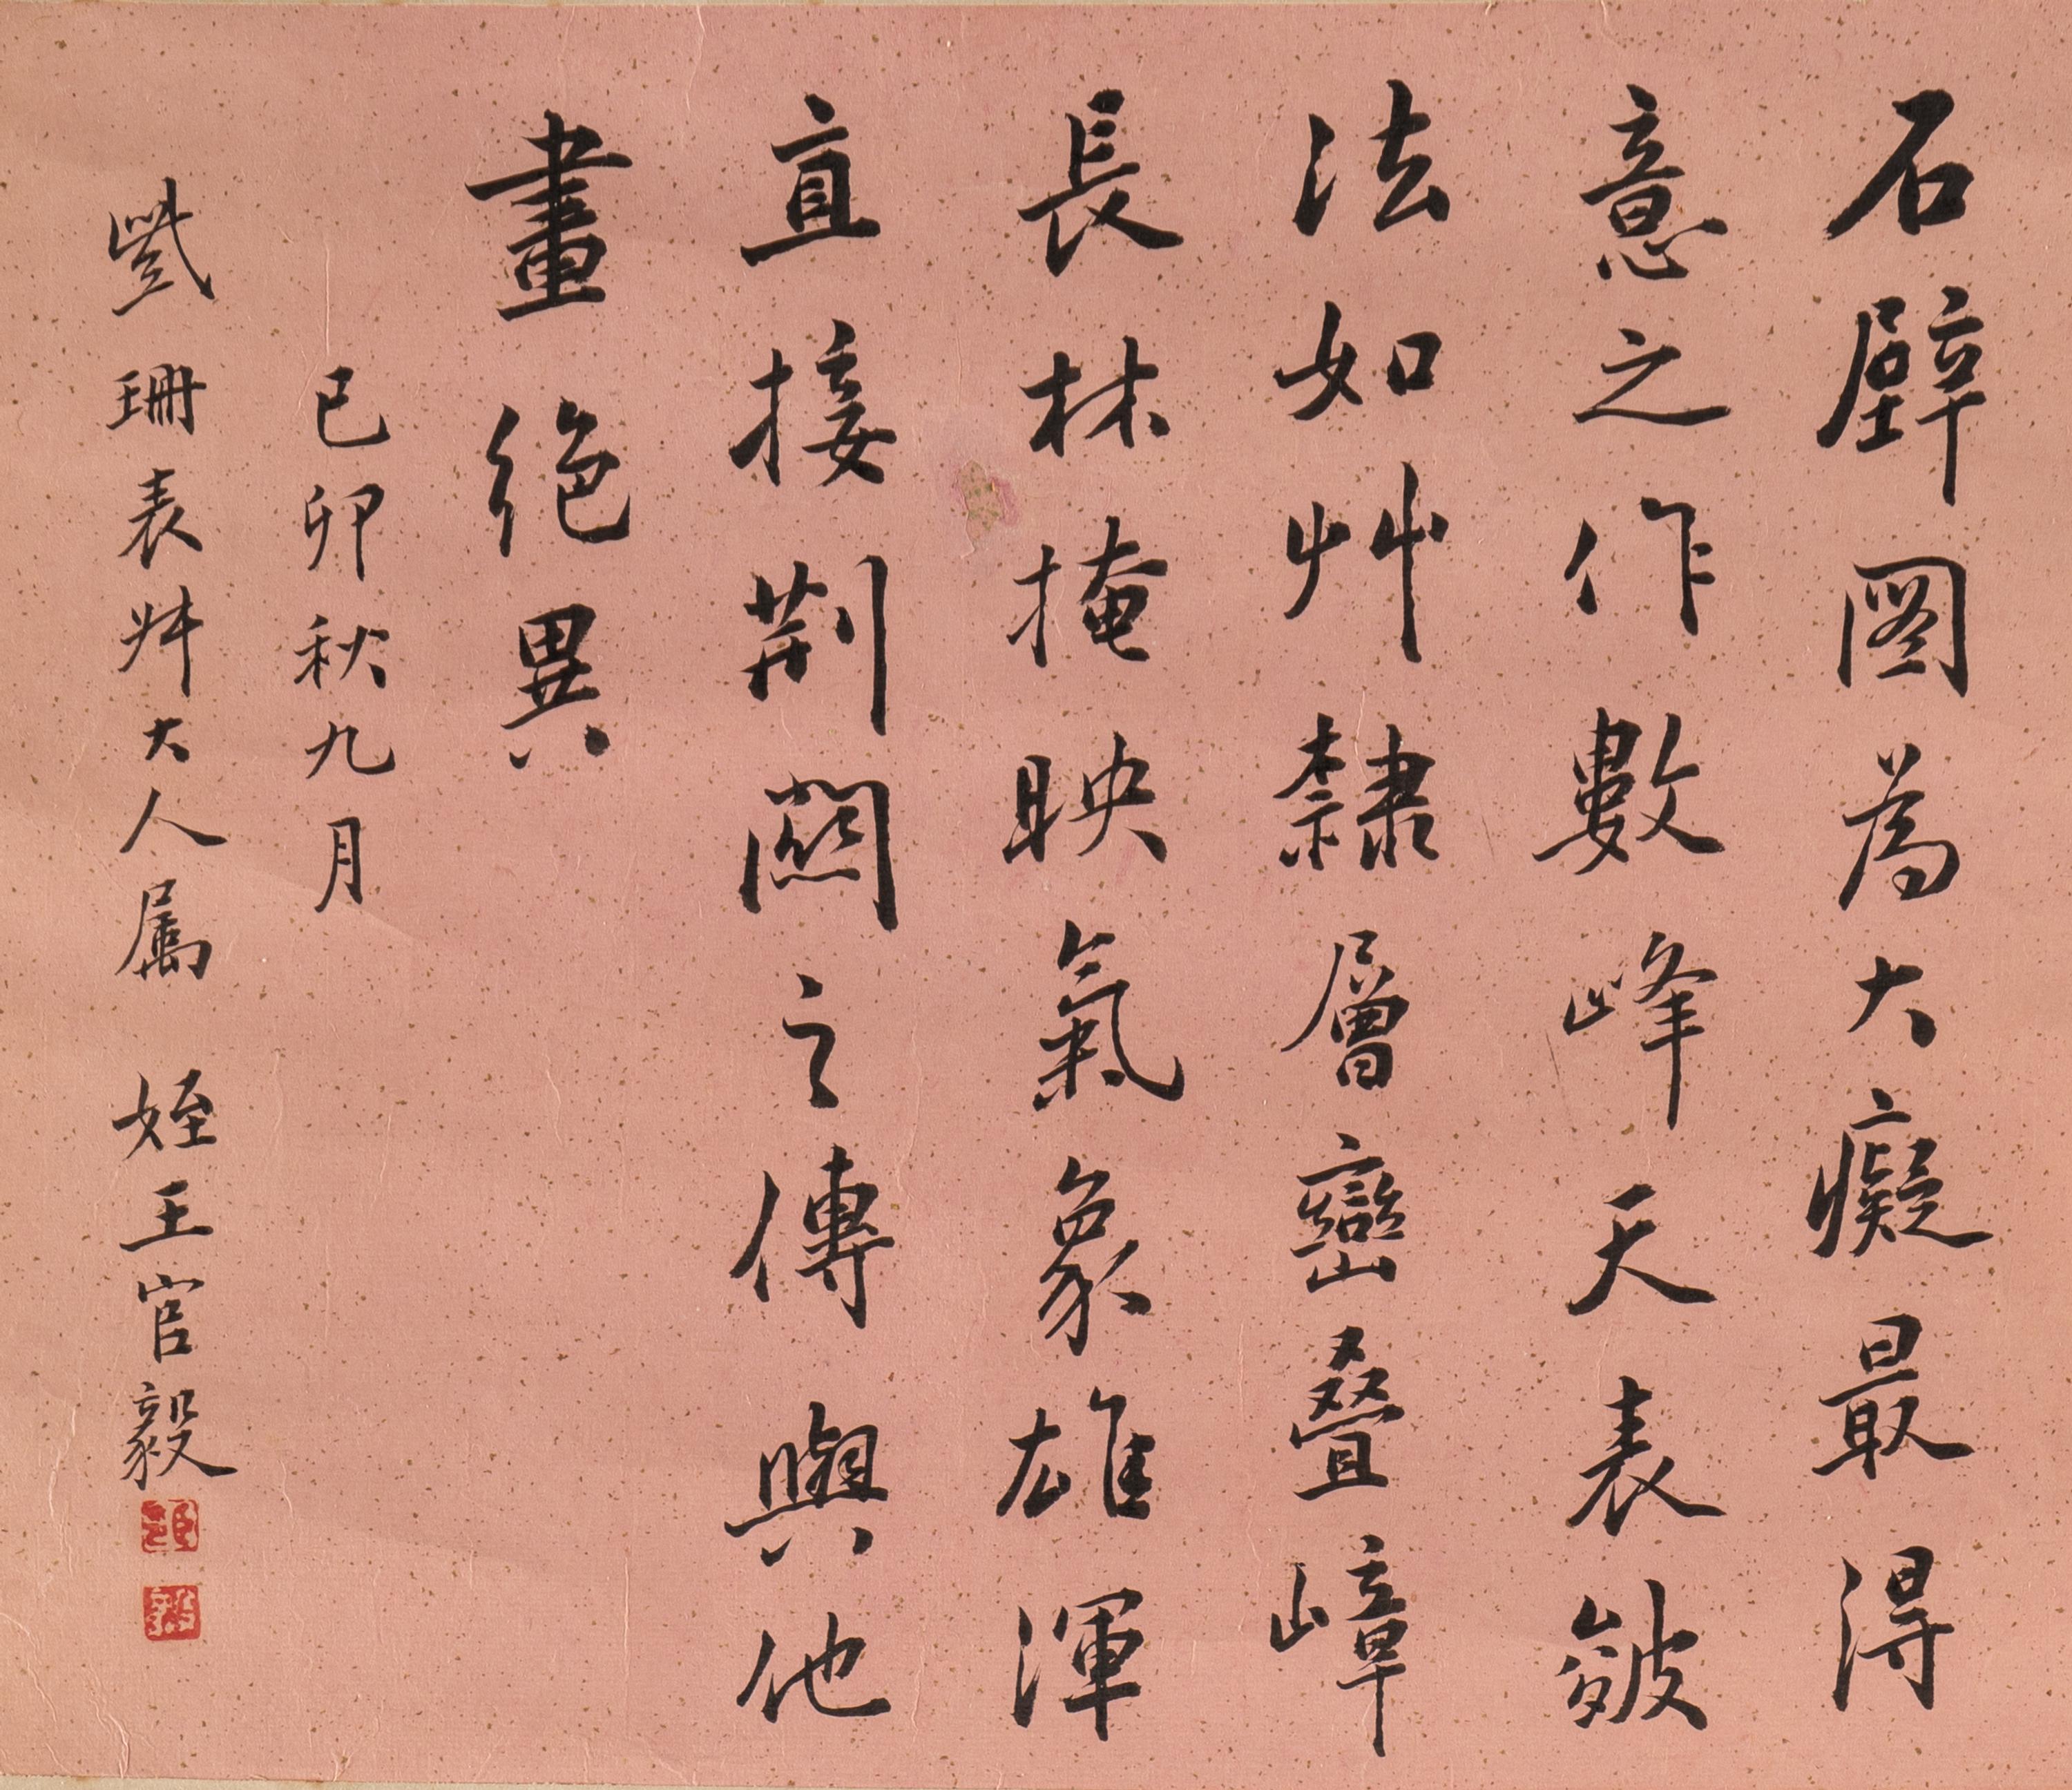 石壁圖為大癡最得
意之作數峰天表皴
法如艸隸層巒叠嶂
長林掩映氣象雄渾
直接荊關之傳與他
畫絕異
己卯秋九月
紫珊表丈大人属 姪王官毅